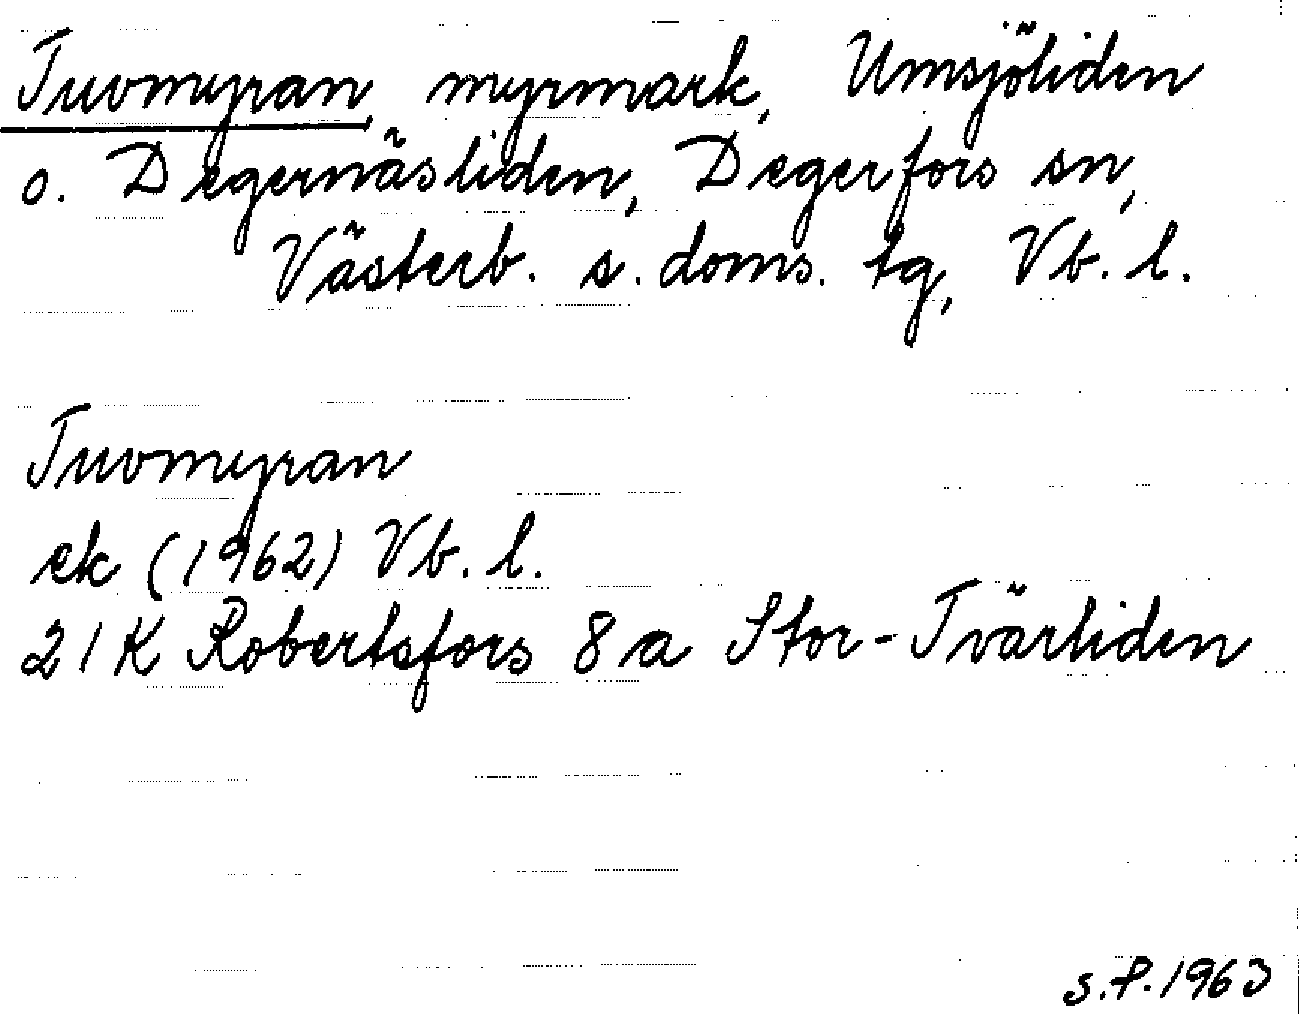 Tuvmyran, myrmark, Umsjöliden
o. Degernäsliden, Degerfors sn,
Västerb. s. doms. tg, Vb. l.
Tuvmyran
ek (1962) Vb. l.
21 K Robertsfors 8 a Stor-Tvärliden
S.P. 1963